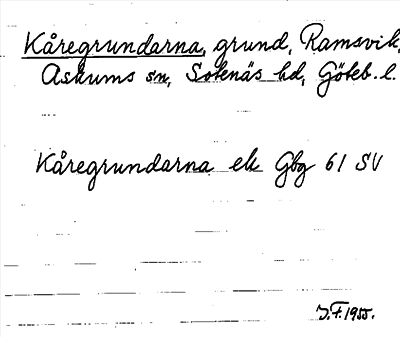 Kåregrundarna, grund, Ramsvik,
Askums sn, Sotenäs hd, Göteb. l.
Kåregrundarna ek Gbg 61 SV
J.F. 1955.